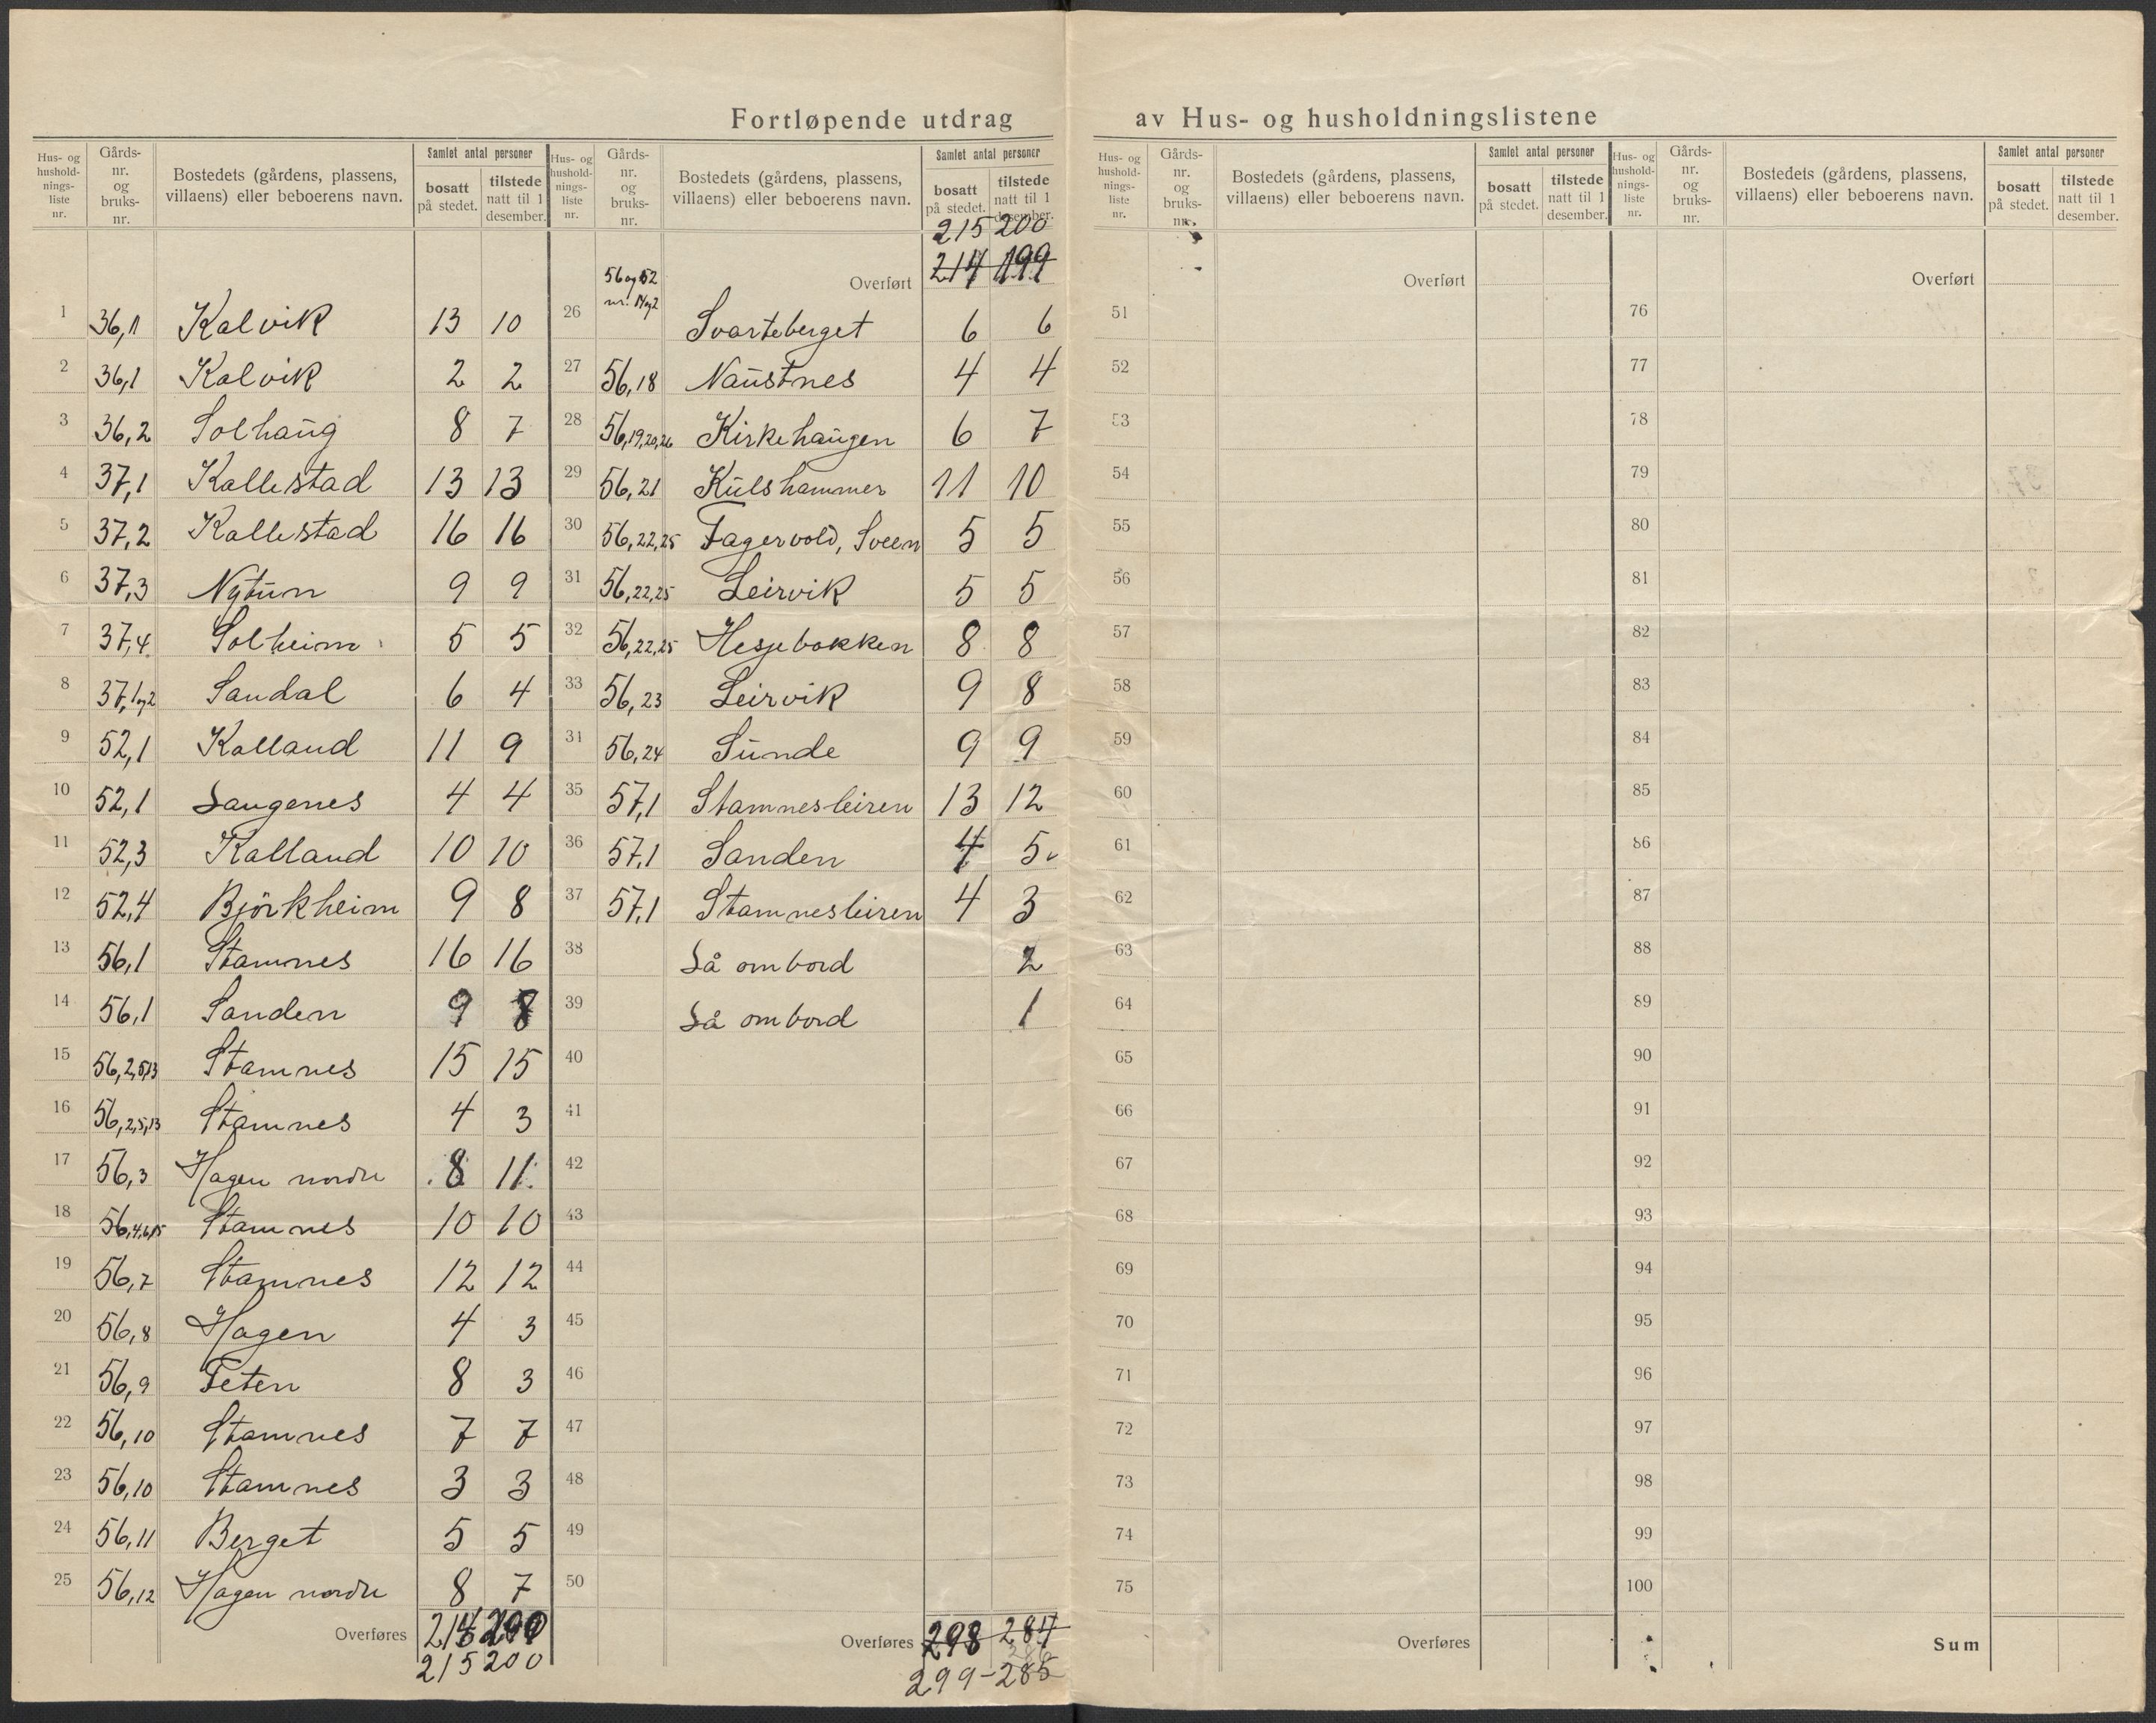 Fortløpende utdrag av Hus- og husholdningslistene
Hus- og hushold- nings- liste nr. Gårds- nr. og bruks- nr. Bostedets (gårdens, plassens, villaens) eller beboerens navn. Samlet antal personer bosatt på stedet. tilstede natt til 1 desember.
1 36,1 Kalvik 13 10
2 36,1 Kalvik 2 2
3 36,2 Solhaug 8 7
4 37,1 Kallestad 13 13
5 37,2 Kallestad 16 16
6 37,3 Nytun 9 9
7 37,4 Solheim 5 5
8 37,1og2 Sandal 6 4
9 52,1 Kalland 11 9
10 52,1 Laugenes 4 4
11 52,3 Kalland 10 10
12 52,4 Björkheim 9 8
13 56,1 Stamnes 16 16
14 56,1 Sanden 9 8
15 56,2,5,13 Stamnes 15 15
16 56,2,5,13 Stamnes 4 3
17 56,3 Hagen nordre 8 11
18 56,4,6,15 Stamnes 10 10
19 56,7 Stamnes 12 12
20 56,8 Hagen 4 3
21 56,9 Teten 8 3
22 56,10 Stamnes 7 7
23 56,10 Stamnes 3 3
24 56,11 Berget 5 5
25 56,12 Hagen nordre 8 7
Overføres
215 200
Hus- og hushold- nings- liste nr. Gårds- nr. og bruks- nr. Bostedets (gårdens, plassens, villaens) eller beboerens navn. Samlet antal personer bosatt på stedet. tilstede natt til 1 desember.
215 200
Overført 214 199
26 56 og 52 nr. 14og2 Svarteberget 6 6
27 56,18 Naustnes 4 4
28 56,19,20,26 Kirkehaugen 6 7
29 56,21 Kulshammer 11 10
30 56,22,25 Fagervold, Sveen 5 5
31 56,22,25 Leirvik 5 5
32 56,22,25 Hesjebakken 8 8
33 56,23 Leirvik 9 8
34 56,24 Sunde 9 9
35 57,1 Stamnesleiren 13 12
36 57,1 Sanden 4 5
37 57,1 Stamnesleiren 4 3
38 Lå ombord 2
39 Lå ombord 1
40
41
42
43
44
45
46
47
48
49
50
Overføres 298 284
299-285
Hus- og hushold- nings- liste nr. Gårds- nr. og bruks- nr. Bostedets (gårdens, plassens, villaens) eller beboerens navn. Samlet antal personer bosatt på stedet. tilstede natt til 1 desember.
Overført
51
52
53
54
55
56
57
58
59
60
61
62
63
64
65
66
67
68
69
70
71
72
73
74
75
Overføres
Hus- og hushold- nings- liste nr. Gårds- nr. og bruks- nr. Bostedets (gårdens, plassens, villaens) eller beboerens navn. Samlet antal personer bosatt på stedet. tilstede natt til 1 desember.
Overført
76
77
78
79
80
81
82
83
84
85
86
87
88
89
90
91
92
93
94
95
96
97
98
99
100
Sum